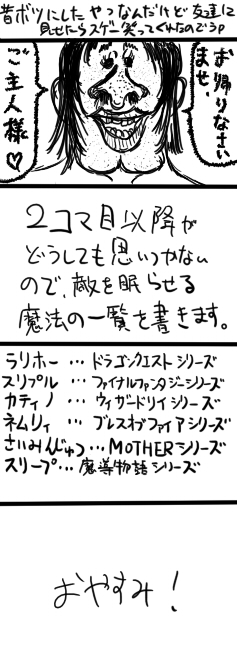 昔ボツにしたやつなんだけど友達に
見せたらスゲー笑ってくれたのでうp
お帰りなさい
ませ、
ご主人様♡
2コマ目以降が
どうしても思いつかない
ので、敵を眠らせる
魔法の一覧を書きます。
ラリホー…ドラゴンクエストシリーズ
スリプル…ファイナルファンタジーシリーズ
カティノ…ウィザードリィシリーズ
ネムリィ…ブレスオブファイアシリーズ
さいみんじゅつ…MOTHERシリーズ
スリープ…魔導物語シリーズ
おやすみ!